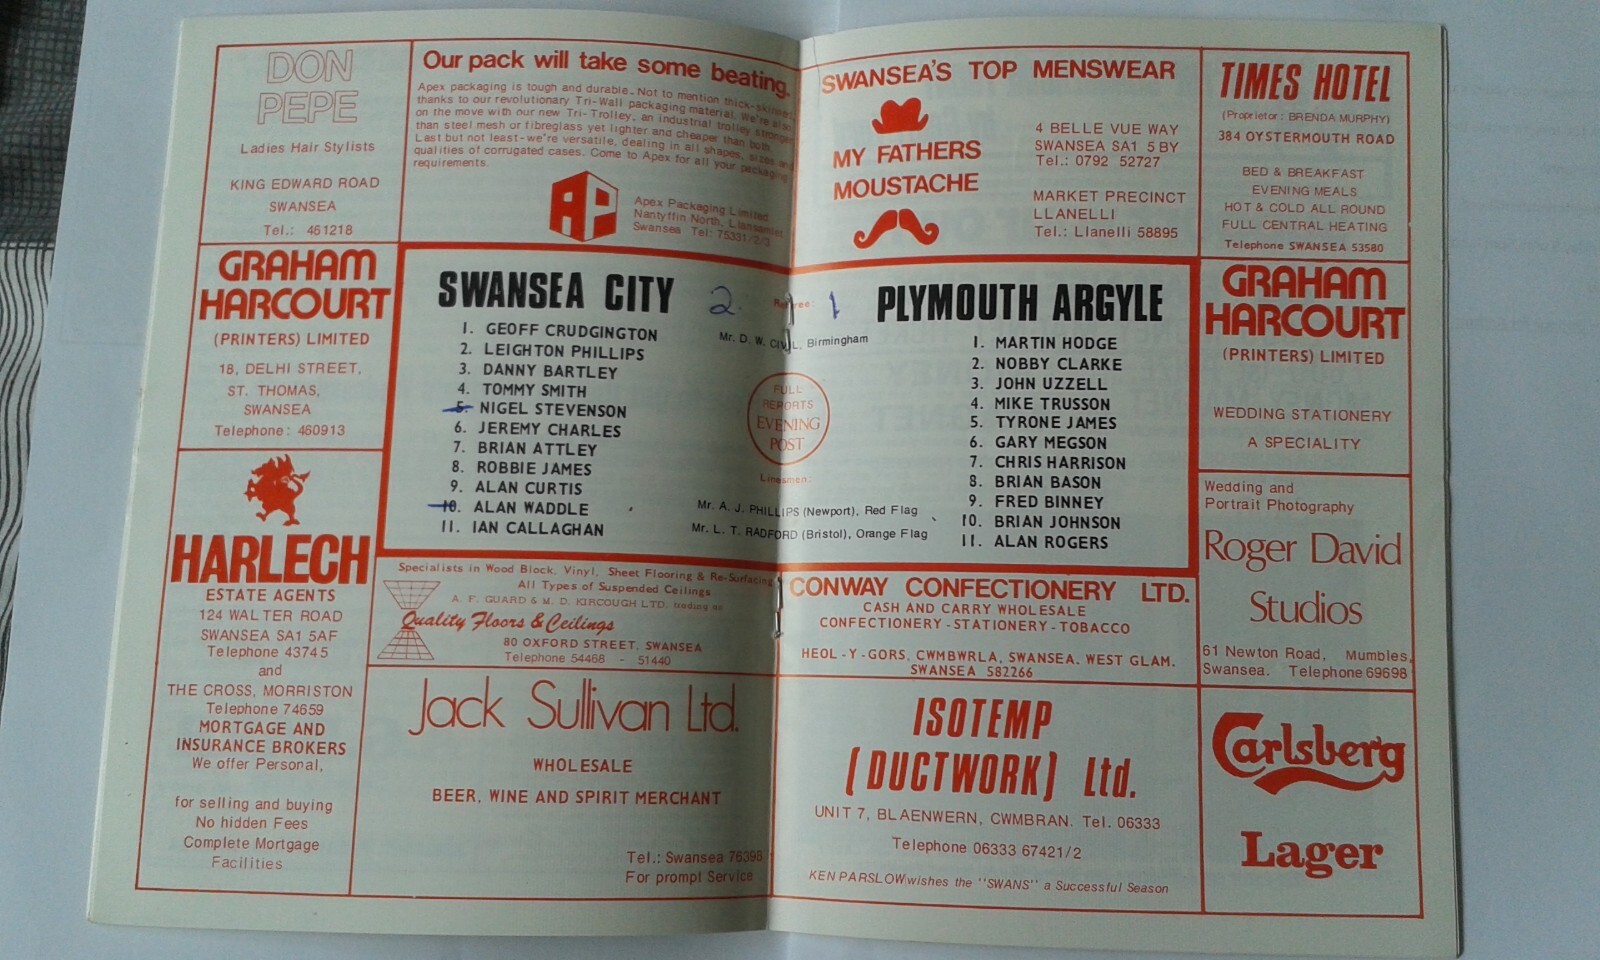 DON
PEPE
Ladies Hair Stylists
KING EDWARD ROAD
SWANSEA
Tel.: 461218
Our pack will take some beating.
Apex packaging is tough and durable. Not to mention thick-skinned,
thanks to our revolutionary Tri-Wall packaging material. We're also
on the move with our new Tri-Trolley, an industrial trolley stronger
than steel mesh or fibreglass yet lighter and cheaper than both.
Last but not least-we're versatile, dealing in all shapes, sizes and
qualities of corrugated cases. Come to Apex for all your packaging
requirements.
AP
Apex Packaging Limited
Nantyffin North, Llansamlet,
Swansea Tel: 75331/2/3
SWANSEA'S TOP MENSWEAR
MY FATHERS
MOUSTACHE
4 BELLE VUE WAY
SWANSEA SA1 5BY
Tel.: 0792 52727
MARKET PRECINCT
LLANELLI
Tel.: Llanelli 58895
TIMES HOTEL
(Proprietor: BRENDA MURPHY)
384 OYSTERMOUTH ROAD
BED & BREAKFAST
EVENING MEALS
HOT & COLD ALL ROUND
FULL CENTRAL HEATING
Telephone SWANSEA 53580
GRAHAM
HARCOURT
(PRINTERS) LIMITED
18, DELHI STREET,
ST. THOMAS,
SWANSEA
Telephone: 460913
SWANSEA CITY 2
1. GEOFF CRUDGINGTON
2. LEIGHTON PHILLIPS
3. DANNY BARTLEY
4. TOMMY SMITH
5. NIGEL STEVENSON
6. JEREMY CHARLES
7. BRIAN ATTLEY
8. ROBBIE JAMES
9. ALAN CURTIS
10. ALAN WADDLE
11. IAN CALLAGHAN
Referee:
Mr. D. W. Birmingham
FULL
REPORTS
EVENING
POST
Linesmen:
Mr. A. J. PHILLIPS (Newport), Red Flag
Mr. L. T. RADFORD (Bristol), Orange Flag
1 PLYMOUTH ARGYLE
1. MARTIN HODGE
2. NOBBY CLARKE
3. JOHN UZZELL
4. MIKE TRUSSON
5. TYRONE JAMES
6. GARY MEGSON
7. CHRIS HARRISON
8. BRIAN BASON
9. FRED BINNEY
10. BRIAN JOHNSON
11. ALAN ROGERS
GRAHAM
HARCOURT
(PRINTERS) LIMITED
WEDDING STATIONERY
A SPECIALITY
HARLECH
ESTATE AGENTS
124 WALTER ROAD
SWANSEA SA1 5AF
Telephone 43745
and
THE CROSS, MORRISTON
Telephone 74659
MORTGAGE AND
INSURANCE BROKERS
We offer Personal,
for selling and buying
No hidden Fees
Complete Mortgage
Facilities
Specialists in Wood Block, Vinyl, Sheet Flooring & Re-Surfacing
All Types of Suspended Ceilings
A. F. GUARD & M. D. KIRCOUGH LTD. trading as
Quality Floors & Ceilings
80 OXFORD STREET, SWANSEA
Telephone 54468 - 51440
CONWAY CONFECTIONERY LTD.
CASH AND CARRY WHOLESALE
CONFECTIONERY - STATIONERY - TOBACCO
HEOL-Y-GORS, CWMBWRLA, SWANSEA. WEST GLAM.
SWANSEA 582266
Wedding and
Portrait Photography
Roger David
Studios
61 Newton Road, Mumbles,
Swansea. Telephone 69698
Jack Sullivan Ltd.
WHOLESALE
BEER, WINE AND SPIRIT MERCHANT
Tel.: Swansea 76398
For prompt Service
ISOTEMP
(DUCTWORK) Ltd.
UNIT 7, BLAENWERN, CWMBRAN. Tel. 06333
Telephone 06333 67421/2
KEN PARSLOW wishes the "SWANS" a Successful Season
Carlsberg
Lager